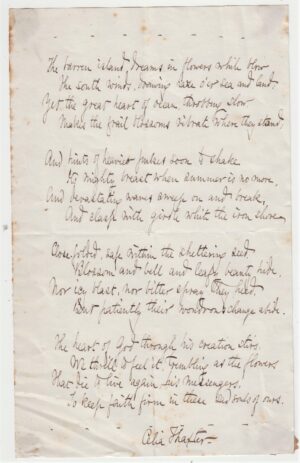 The barren island dreams in flowers while blow
The south winds, drawing haze o'er sea and land,
Yet the great heart of ocean, throbbing slow
Makes the frail blossoms vibrate where they stand;
And hints of heavier pulses soon to shake
Its mighty breast when summer is no more,
And devastating waves sweep on and break,
And clasp with girdle white the iron shore.
Close folded, safe within the sheltering seed,
Blossom and bell and leafy beauty hide.
Nor icy blast, nor bitter spray they heed,
But patiently their wondrous change abide.
The heart of God through his creation stirs,
We thrill to feel it, trembling as the flowers
That die to live again, his messengers,
To keep faith firm in these sad souls of ours.
Celia Thaxter